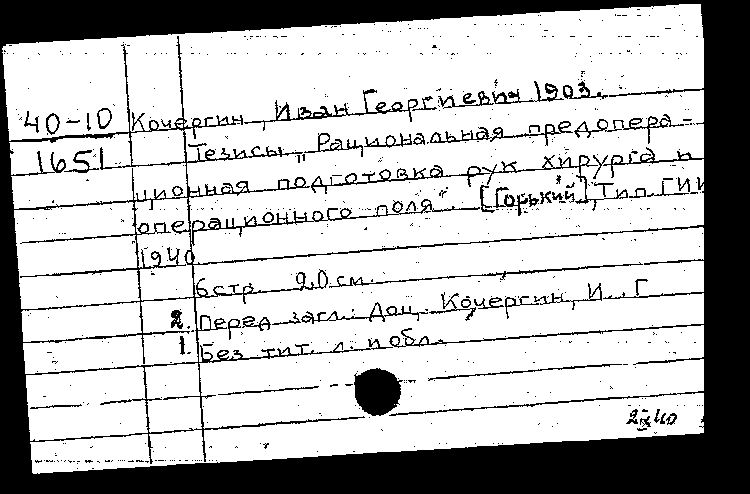 40-10
1651
Кочергин, Иван Георгиевич 1903.
Тезисы „Рациональная предопера-
ционная подготовка рук хирурга и
операционного поля". [Горький], Тип. ГИИ
1940
6 стр. 20 см.
2. Перед загл.: Доц. Кочергин, И. Г
1. Без тит. л. и обл.